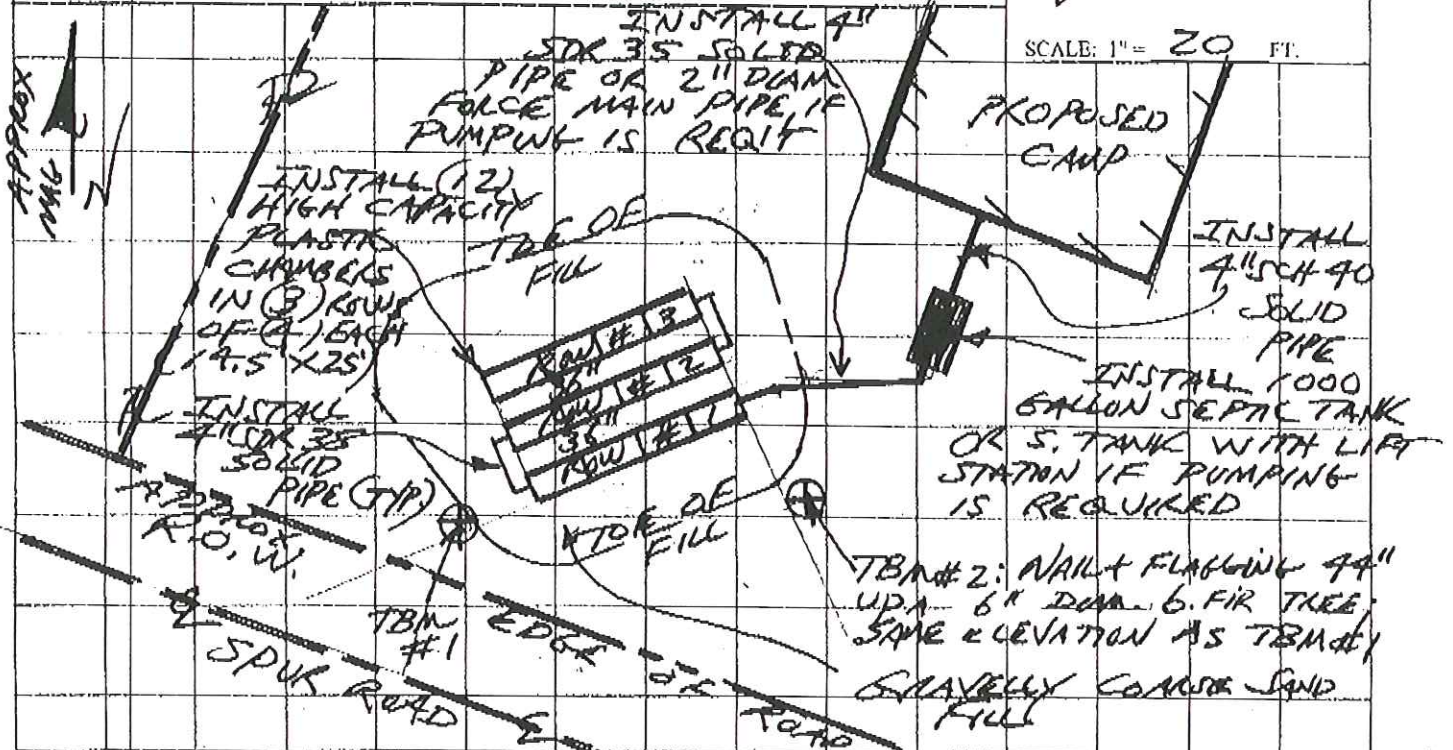 SCALE: 1" = 20 FT.
APPROX
MAG
N
INSTALL 4"
SDR 35 SOLID
PIPE OR 2" DIAM
FORCE MAIN PIPE IF
PUMPING IS REQ'T
PROPOSED
CAMP
INSTALL (12)
HIGH CAPACITY
PLASTIC
CHAMBERS
IN (3) ROWS
OF (4) EACH
(14.5 X 25')
TOE OF
FILL
INSTALL
4" SCH 40
SOLID
PIPE
ROW # 3
36"
ROW # 2
36"
ROW # 1
INSTALL 1000
GALLON SEPTIC TANK
OR S. TANK WITH LIFT
STATION IF PUMPING
IS REQUIRED
INSTALL
4" SDR 35
SOLID
PIPE (TYP.)
APPROX
R.O.W.
TOE OF
FILL
TBM #2: NAIL + FLAGGING 44"
UP A 6" DIAM. B. FIR TREE;
SAME ELEVATION AS TBM #1
TBM
#1
EDGE OF ROAD
SPUR ROAD
GRAVELLY COARSE SAND
FILL